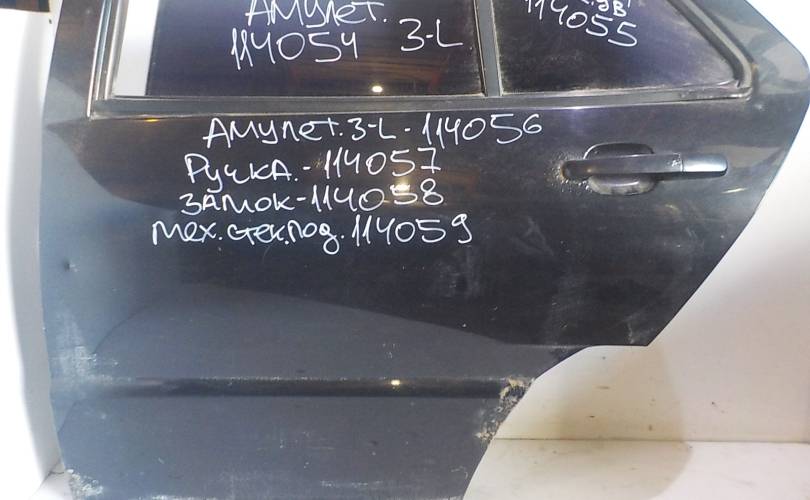 Амулет.
114054 З-L
114055
Амулет.З-L-114056
Ручка.-114057
Замок-114058
Мех.стек.под.114059